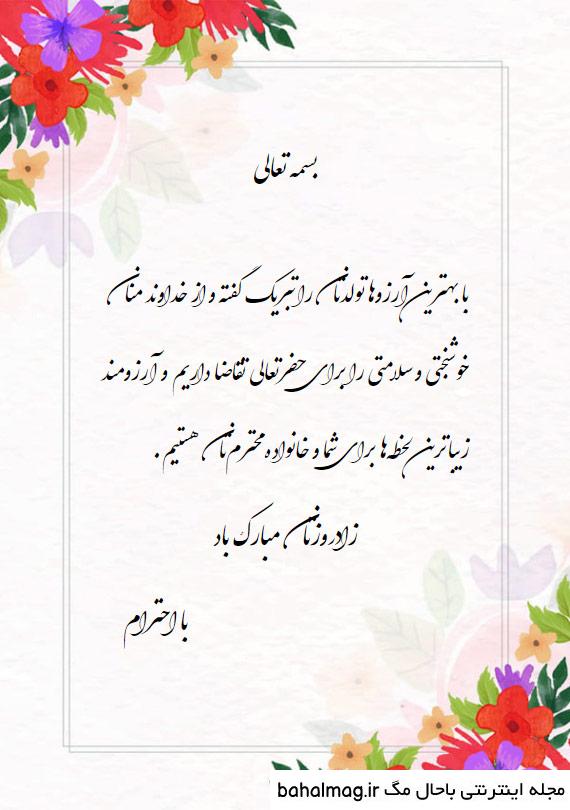 بسمه تعالی
با بهترین آرزوها تولدتان را تبریک گفته و از خداوند منان
خوشبختی و سلامتی را برای حضرتعالی تقاضا داریم و آرزومند
زیباترین لحظه‌ها برای شما و خانواده محترم‌تان هستیم .
زادروزتان مبارک باد
با احترام
مجله اینترنتی باحال مگ bahalmag.ir